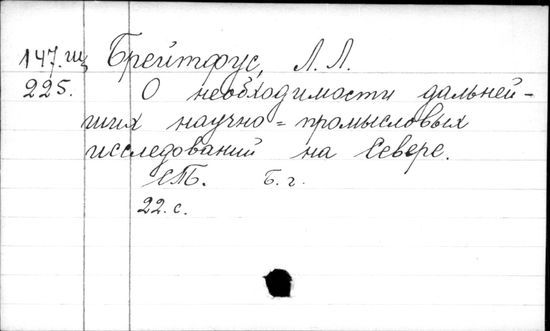 147.щ Брейтфус, Л. Л.
225. О необходимости дальней-
ших научно = промысловых
исследований на Севере.
СПб. Б. г.
22. с.